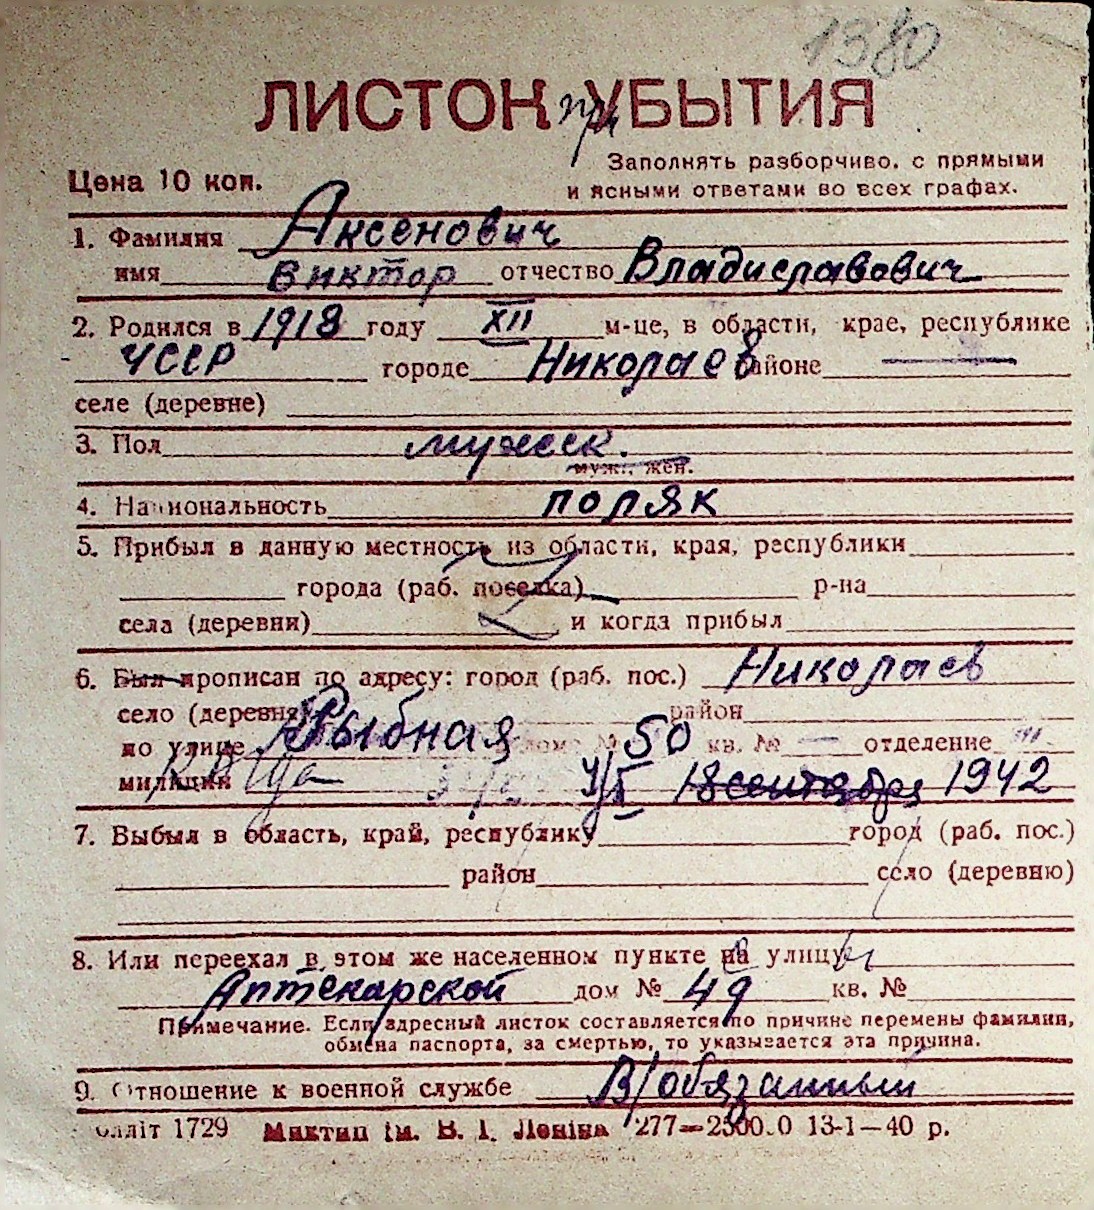 1380
ЛИСТОК при УБЫТИЯ
Цена 10 коп.
Заполнять разборчиво, с прямыми
и ясными ответами во всех графах.
1. Фамилия Аксенович
имя Виктор отчество Владиславович
2. Родился в 1918 году XII м-це, в области, крае, республике
УССР городе Николаев районе —
селе (деревне)
3. Пол мужск.
муж., жен.
4. Национальность поляк
5. Прибыл в данную местность из области, края, республики
города (раб. поселка) р-на
села (деревни) и когда прибыл
6. Был прописан по адресу: город (раб. пос.) Николаев
село (деревня) район
по улице Рыбная дом № 50 кв. № — отделение
милиции 18 сентября 1942
7. Выбыл в область, край, республику город (раб. пос.)
район село (деревню)
8. Или переехал в этом же населенном пункте на улицу
Аптекарской дом № 49 кв. №
Примечание. Если адресный листок составляется по причине перемены фамилии,
обмена паспорта, за смертью, то указывается эта причина.
9. Отношение к военной службе В/обязанный
олліт 1729 Миктип ім. В. І. Леніна 277—25000 13-1—40 р.